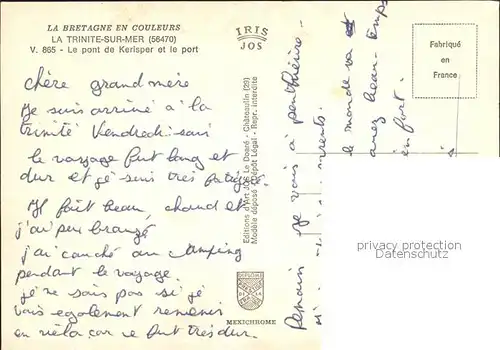 LA BRETAGNE EN COULEURS
LA TRINITE-SUR-MER (56470)
V. 865 - Le pont de Kerisper et le port
IRIS
JOS
Fabriqué
en
France
chère grand mère
Je suis arrivé a la
trinité Vendredi soir
le voyage fut long et
dur et gé suis trés fatigué
Il fait beau, chaud et
j'ai peu bronzé
j'ai couché au camping
pendant le voyage
je ne sais pas si je
vais egalement revenir
en vélo car ce fut trés dur.
Demain je vais à penthièvre
le monde va et
avez beau temps
en fort.
Editions d'Art JOS Le Doaré - Châteaulin (29)
Modèle déposé - Dépôt Légal - Repr. interdite
MEXICHROME
privacy protection
Samdatenschutz